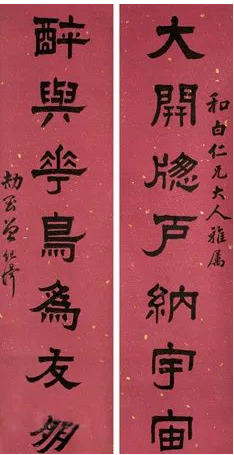 大開窗戶納宇宙
和白仁兄大人雅属
醉與花鳥為友朋